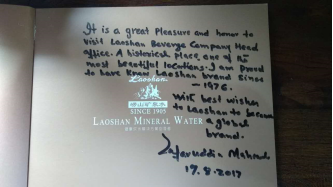 It is a great Pleasure and honor to
visit Laoshan Beverge Company Head
office. A historical Place, one of the
most beautiful locations. I am proud
to have know Laoshan brand since
~1976.
With best wishes
to Laoshan to become
a global
brand.
Laoshan
崂山矿泉水
SINCE 1905
LAOSHAN MINERAL WATER
17.8.2017